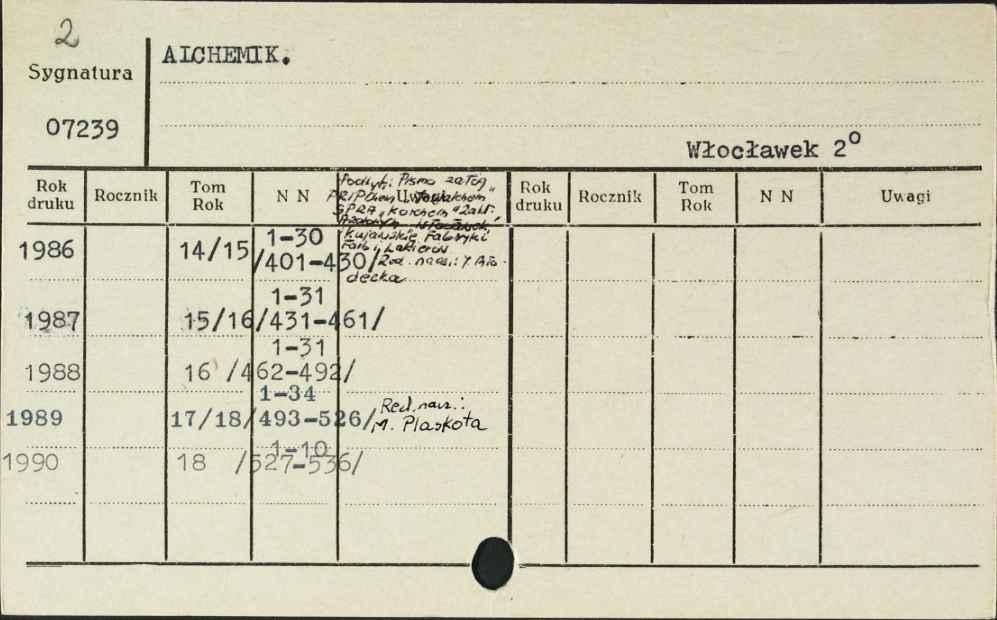 2
Sygnatura
07239
ALCHEMIK.
Włocławek 2°
Rok druku Rocznik Tom Rok N N Uwagi Rok druku Rocznik Tom Rok N N Uwagi
Podtyt.: Pismo załóg
Kujawskie Fabryki
Farb i Lakierów
1986 14/15 1-30
/401-430/ Red. nacz.:
1-31
1987 15/16 /431-461/
1-31
1988 16 /462-492/
1-34
1989 17/18 /493-526/ Red. nacz.:
M. Plaskota
1-10
1990 18 /527-536/